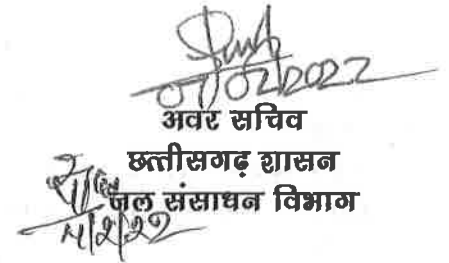 07/02/2022
अवर सचिव
छत्तीसगढ़ शासन
जल संसाधन विभाग